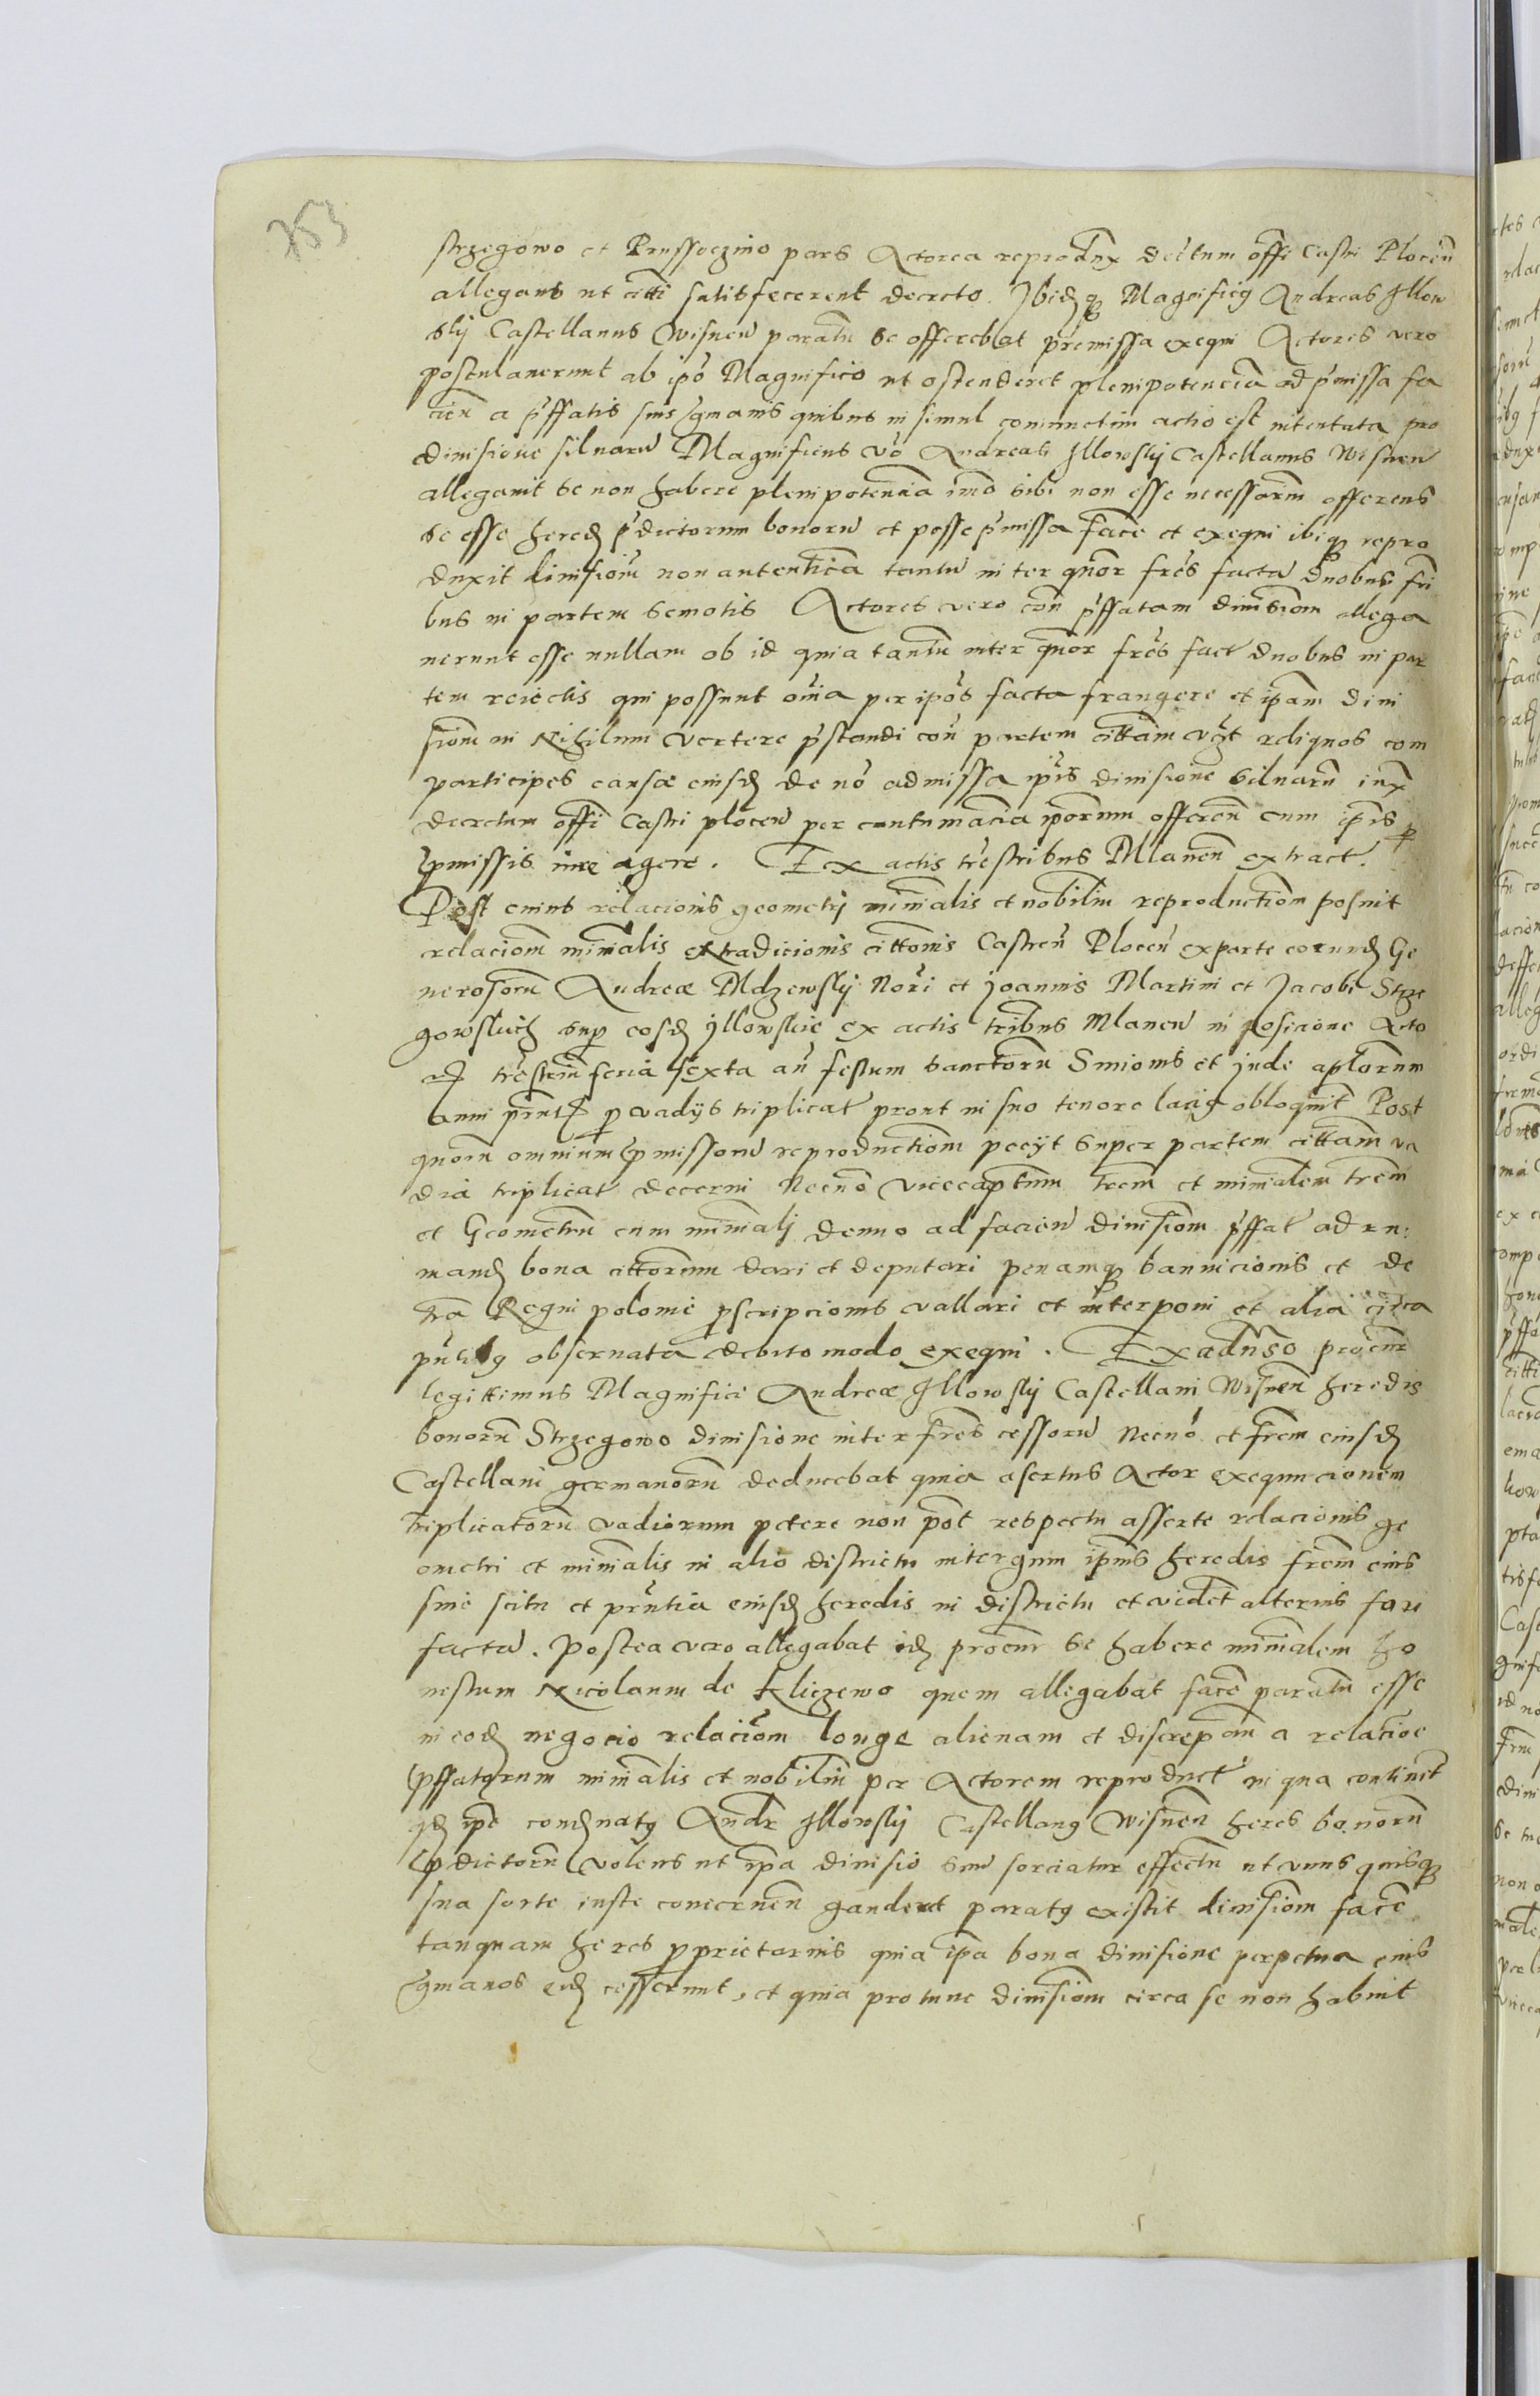 353
strzegowo et Prussoczino pars Actorea reprodux̃ dec̃tum off̃i Castri Ploceñ
allegans ut citt̃i satisfecerent decreto. Ibidẽ q̃ Magnificq Andreas Illow
skÿ Castellanus Wisneñ paratũ se offerebat premissa exequi Actores vero
postulaverunt ab ip̃o Magnifico ut ostenderet plenipotenciã ad p̃missa fa
cieñ a p̃ffatis suis g̃manis quibus in simul coniunctim actio est intentata pro
divisione silvarũ Magnificus vo Andreas Illowskÿ Castellanus Wisneñ
allegavit se non habere plenipotenciã imo sibi non esse necessariũ offerens
se esse heredẽ p̃dictorum bonorũ et posse p̃missa facẽ et exequi ibiq̃ repro
duxit divisiom̃ non autenticã tantũ inter quor̃ fr̃es factã duobus fr̃i
bus in partem semotis Actores vero coñ p̃ffatam divisiom̃ allega
verunt esse nullam ob id quia tantũ inter quor̃ fr̃es fact̃ duobus in par
tem reiectis qui possunt om̃ia per ip̃os facta frangere et ip̃am divi
siom̃ in Nihilum vertere p̃standi coñ partem citt̃am vz̃t reliquos com
participes causæ eiusdẽ de no admissa ip̃is divisione silvarũ iux̃
decretum off̃i Castri ploceñ per contumaciã ip̃orum offereñ cum ip̃is p̃
p̃missis iure agere. Ex actis tr̃estribus Mlaueñ extract̃.
Post cuius relacionis geometrÿ min̄alis et nobiliũ reproductiom̃ posuit
relaciom̃ min̄alis extradicionis citt̃onis Castreñ Ploceñ ex parte eorundẽ Ge
nerosorũ Andreæ Mdzewskÿ Nor̃i et Joannis Martini et Jacobi Strze
gowskich sup̃ eosdẽ Jllowskie ex actis tr̃ibus Mlaueñ in posicione Acto
rũ tr̃estriũ feria sexta añ festum sanctorũ Simionis et Jude aplorum
anni pr̃ntĩs p̃ vadÿs triplicat̃ prout in suo tenore laciq̃ obloquit̃ Post
quorũ omnium p̃missorũ reproductiom̃ peciÿt super partem citt̃am va
dia triplicat̃ decerni Necnõ vicecapt̃um tr̃em et min̄alem tr̃em
et Geometrũ cum min̄alj denuo ad facieñ divisiom̃ p̃ffat̃ ad ru:
mandẽ bona citt̃orum dari et deputari penamq̃ bannicionis et de
tr̃a Regni polonie p̃scripcionis vallari et interponi et alia circa
observata debito modo exequi. Ex adũso procur̃
legittimus Magnifici Andreæ Illowskÿ Castellani Wisneñ heredis
bonorũ Strzegowo divisione inter fr̃es cessorũ Necnõ et fr̃em eiusdẽ
Castellani germanorũ deducebat quia asertus Actor exequucionem
triplicatorũ vadiorum petere non pot̃ respectu asserte relacionis ge
ometri et min̄alis in alio districtu intergum ip̃ius heredis fr̃em eius
sine scitu et pr̃ntia eiusdẽ heredis in districtu et videt̃ alterius fori
factã. Postea vero allegabat idẽ procur̃ se habere min̄alem ho
nestum Nicolaum de Kliczewo quem allegabat facẽ paratũ esse
in eodẽ negocio relaciom̃ longe alienam et discrepañ a relacioe
p̃ffatorum min̄alis et nobiliũ per Actorem reproduct̃ in qua continet̃
qdẽ ip̃e condẽnatq Andr̃ Illowskÿ Castellanq Wisneñ heres bonorũ
p̃dictorũ volens ut ip̃a divisio suũ sorciatur effectũ ut unus quisq̃
sua sorte iuste concerneñ gauderet paratq existit divisiom̃ facẽ
tanquam heres p̃prietarius quia ip̃a bona divisione perpetua eius
g̃manos eidẽ cesserunt, et quia pro tunc divisiom̃ circa se non habuit